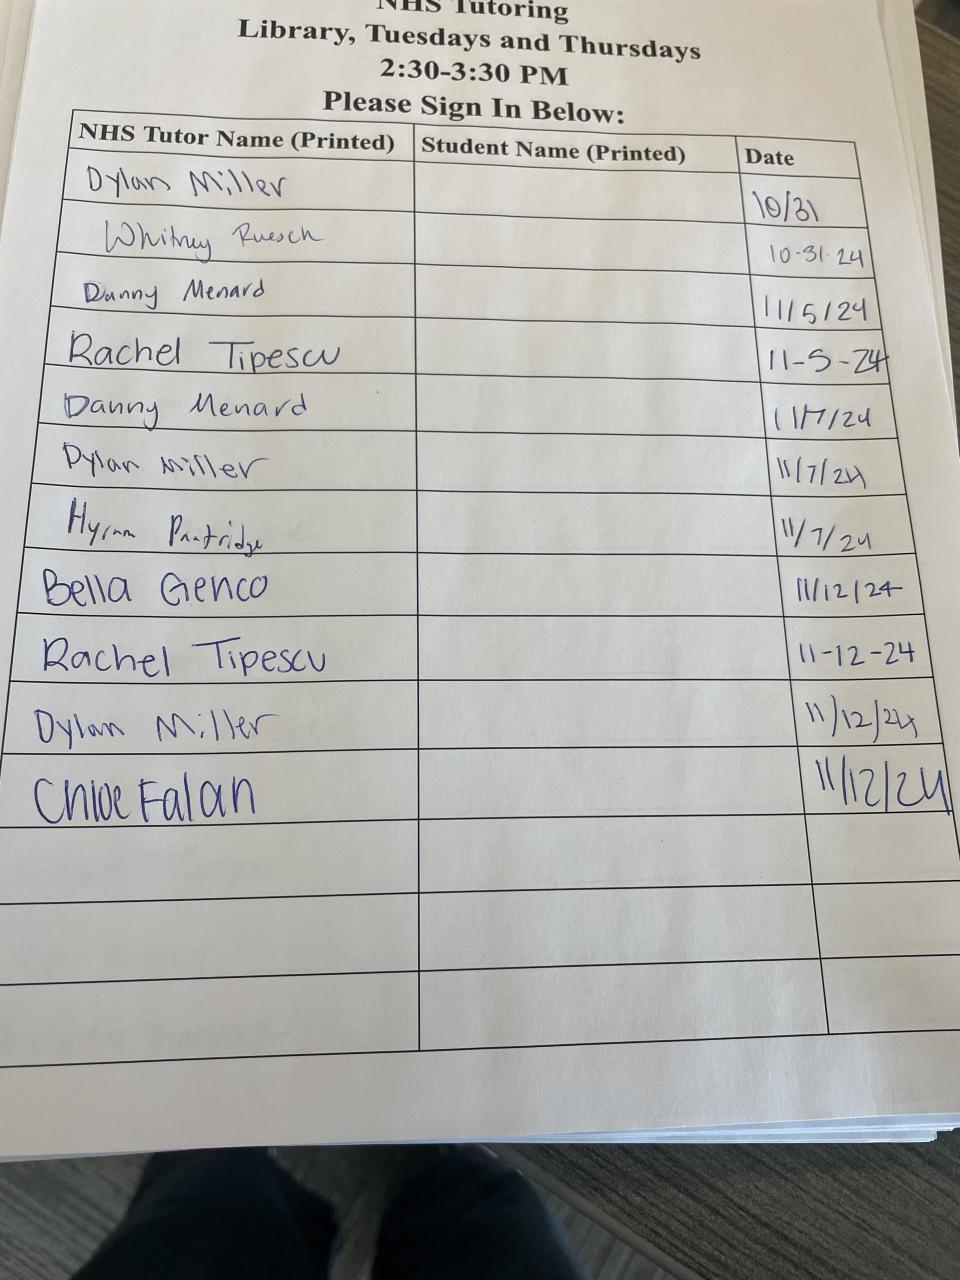 NHS Tutoring
Library, Tuesdays and Thursdays
2:30-3:30 PM
Please Sign In Below:
NHS Tutor Name (Printed) Student Name (Printed) Date
Dylan Miller 10/31
Whitney Ruesch 10-31-24
Danny Menard 11/5/24
Rachel Tipescu 11-5-24
Danny Menard 11/7/24
Dylan Miller 11/7/24
Hyrum Partridge 11/7/24
Bella Genco 11/12/24
Rachel Tipescu 11-12-24
Dylan Miller 11/12/24
Chloe Falan 11/12/24